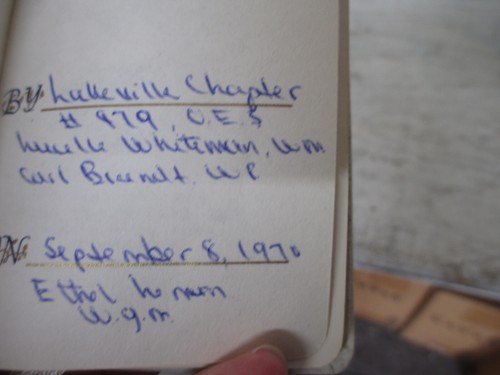 BY Lakeville Chapter
# 979 O.E.S
Lucille Whiteman, W M
Carl Brandt, W P
September 8, 1970
Ethol
W.g.m.